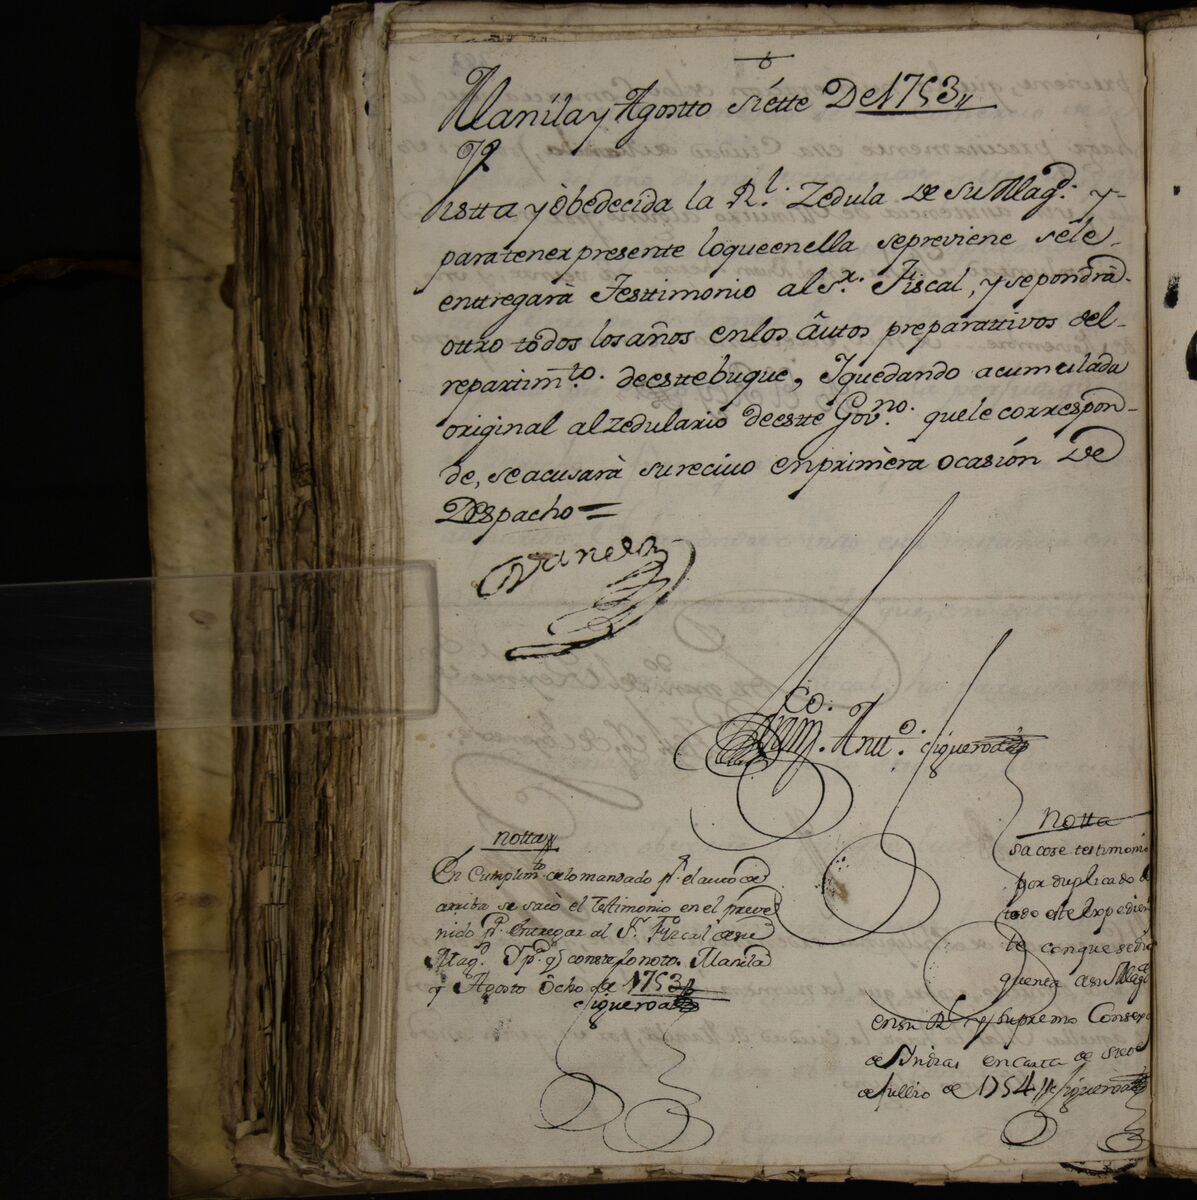 Manila y Agostto siétte De 1753,,
Vistta y òbedecida la Rl. Zedula De su Magd. y
para tener presente lo que en ella se previene se le
enttregarà Testtimonio al Sr. Fiscal, y se pondrà
ottro tôdos los años en los âutos preparattivos del
repartimto. de estte buque, Y quedando acumulada
original al zedulario de estte Govno. que le correspon-
de, se acusarà su recivo en primèra ocasión De
Despacho =
Franco. Antto. Figueroa
notta
En Cumplimto. de lo mandado pr. el auto de
arriba se sacò el Testimonio en el preve
nido pa. entregar al Sr. Fiscal de su
Magd. Y pa. q conste lo noto. Manila
y Agosto Ôcho de 1753
Figueroa
Notta
Sacose testimonio
por duplicado de
todo este Expedien
te con que se diò
quenta a su Magd.
en su Rl. y Supremo Consexo
de Yndias en carta de
de Jullio de 1754 Figueroa